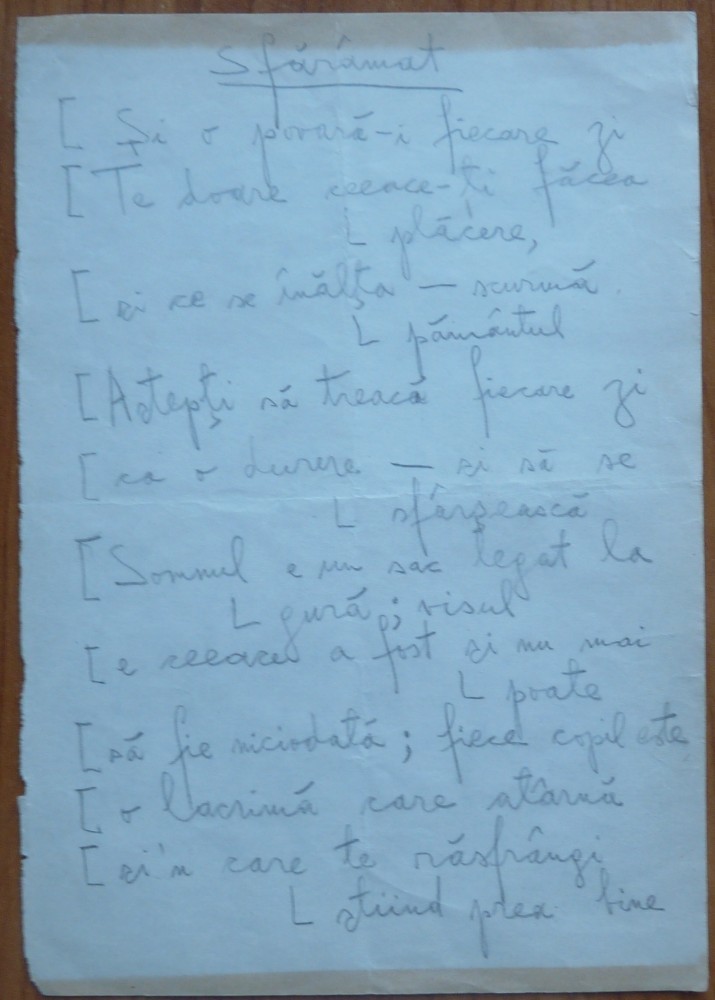 Sfărâmat
[ Și o povară-i fiecare zi
[ Te doare ceeace-ți făcea
L plăcere,
[ și ce se înălța — scurmă
L pământul
[ Aștepți să treacă fiecare zi
[ ca o durere — și să se
L sfârșească
[ Somnul e un sac legat la
L gură; visul
[ e ceeace a fost și nu mai
L poate
[ să fie niciodată; fiece copil este
[ o lacrimă care atârnă
[ și'n care te răsfrângi
L știind prea bine